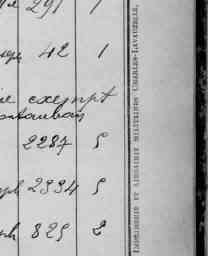 291 1
42 1
exempt
Montauban
2287 5
2334 5
825 2
IMPRIMERIE ET LIBRAIRIE MILITAIRES CHARLES-LAVAUZELLE.